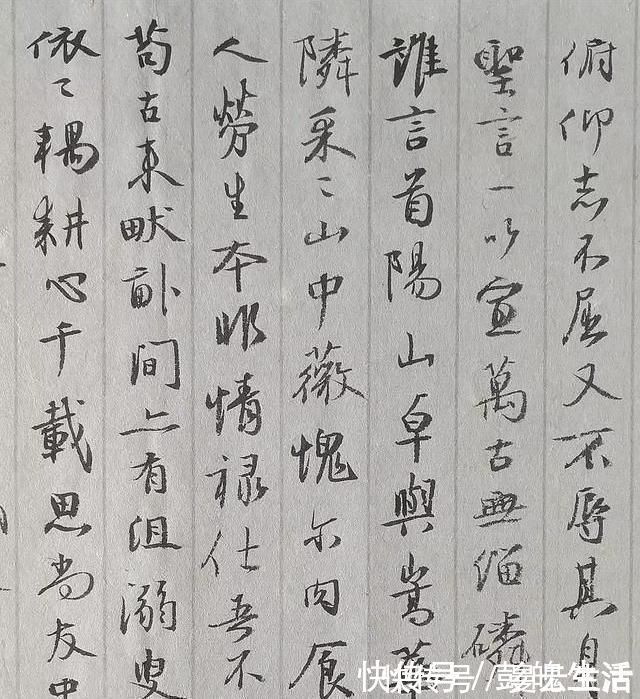 俯仰志不屈又不辱其身
聖言一以宣萬古無緇磷
誰言首陽山卓與嵩華
隣采〻山中薇愧尔肉食
人勞生本非情禄仕吾不
苟古来畎畝間亦有沮溺叟
依〻耦耕心千載思尚友中
快传号//彭魄生活